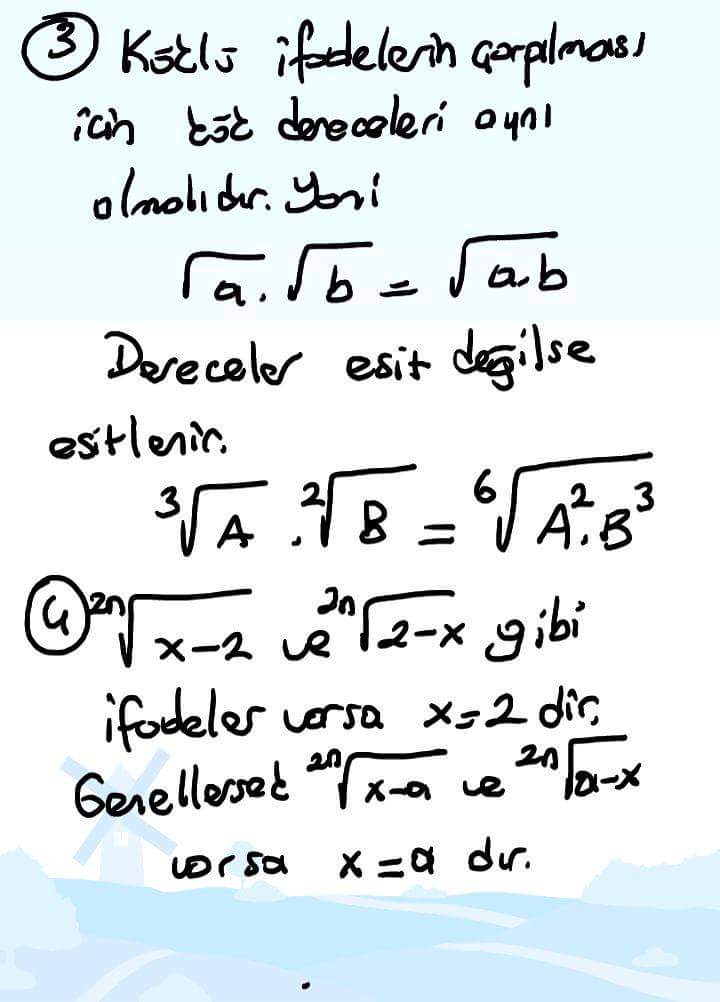 ③ Köklü ifadelerin çarpılması
için kök dereceleri aynı
olmalıdır. Yani
√a . √b = √a.b
Dereceler esit değilse
eşitlenir.
³√A . ²√B = ⁶√A².B³
④ ²ⁿ√x-2 ve ²ⁿ√2-x gibi
ifadeler varsa x=2 dir.
Genellersek ²ⁿ√x-a ve ²ⁿ√a-x
varsa x=a dır.